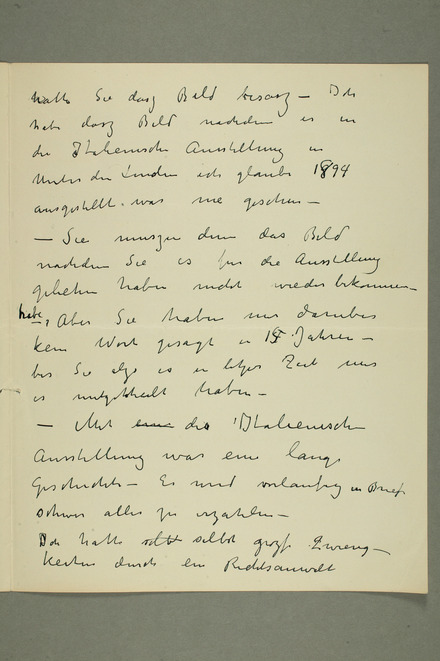 hatte Sie dasz Bild besasz – Ich
habe dasz Bild nachdem es in
die Italienische Ausstellung in
Unter den Linden ich glaube 1894
ausgestellt war nie gesehen –
– Sie muszen dem das Bild
nachdem Sie es fur die Ausstellung
geliehen haben nicht wieder bekommen
habe –, Aber Sie haben mir daruber
kein Wort gesagt in 15 Jahren –
bis Sie also es in letzer Zeit mir
es mitgetheilt haben –
– Mit die Italienische
Ausstellung war eine lange
Geschichte – Es wird vorlaufig in Brief
schwer alles zu erzahlen –
Ich hatte selbst grosze
keiten durch ein Rechtsanwalt